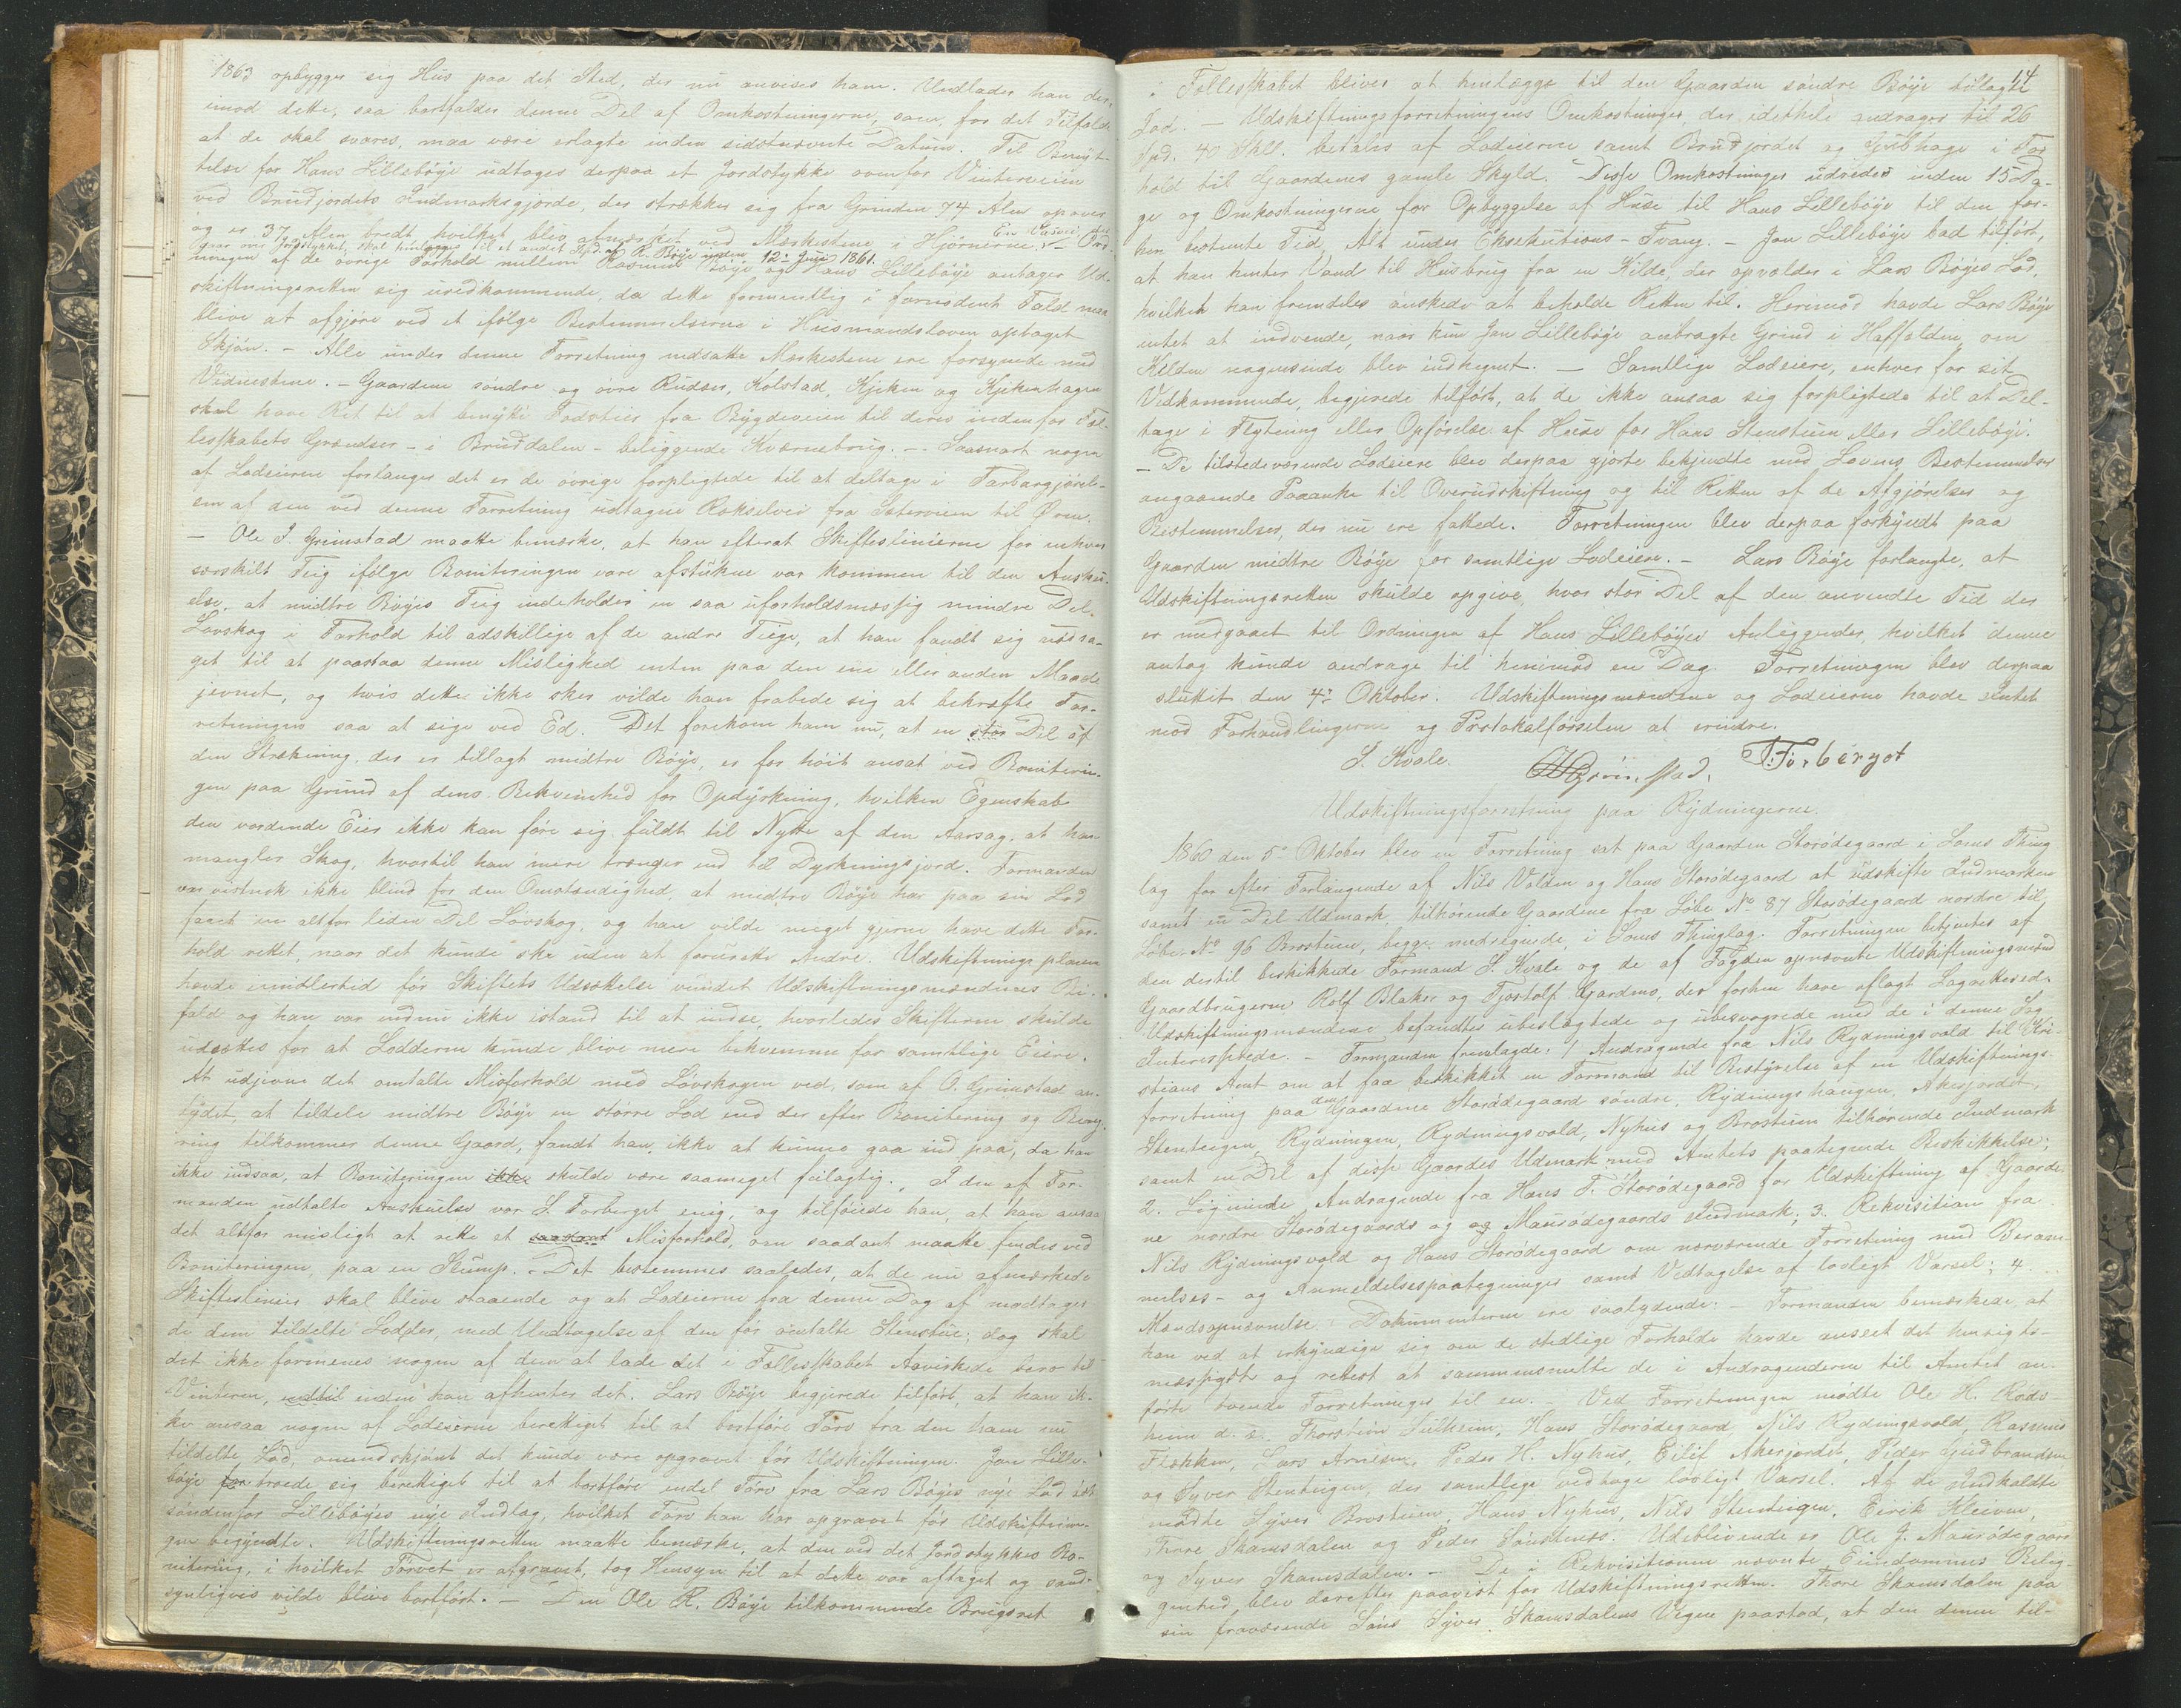 1863 opbygger sig Hus paa det Sted, der nu anvises ham. Undlader han der-
imod dette, saa bortfalder denne Del af Omkostningerne, som, for det Tilfælde
at de skal svares, maa være erlagte inden sidstnævnte Datum. Til Benyt-
telse for Hans Lillebøye udtoges derpaa et Jordstykke ovenfor Vinterveien
ved Brudjordets Indmarksgjærde, der strækker sig fra Grinden 74 Alen opover
og er 37 Alen bredt, hvilket blev afmærket ved Mærkestene i Hjørnerne. En Vasvei der
gaar over Jordstykket, skal henlægges til et andet Sted af R. Bøye inden 12te Juni 1861. – Ord-
ningen af de øvrige Forhold mellem Rasmus Bøye og Hans Lillebøye antager Ud-
skiftningsretten sig uvedkommende, da dette formentlig i fornødent Fald maa
blive at afgjøre ved et ifølge Bestemmelserne i Husmandsloven optaget
Skjøn. – Alle under denne Forretning nedsatte Merkestene ere forsynede med
Vidnestene. – Gaardene søndre og øvre Rudser, Kolstad, Kjeken og Kjekenhagen
skal have Ret til at benytte Fodsteier fra Bygdeveien til deres indenfor Fæl-
lesskabets Grændser – i Bruddalen – beliggende Kværnebrug. – Saasnart nogen
af Lodeierne forlanger det er de øvrige forpligtede til at deltage i Farbargjørel-
sen af den ved denne Forretning udtagne Kokselvei fra Sæterveien til Ørem.
– Ole J. Grimstad maatte bemærke, at han efterat Skifteslinierne for enhver
særskilt Teig ifølge Boniteringen vare afstukne var kommen til den Ansku-
else, at midtre Bøyes Teig indeholder en saa uforholdsmæssig mindre Del
Løvskog i Forhold til adskillige af de andre Teige, at han fandt sig nødsa-
get til at paastaa denne Mislighed enten paa den ene eller anden Maade
jevnet, og hvis dette ikke sker vilde han frabede sig at bekræfte For-
retningen saa at sige ved Ed. Det forekom ham nu, at en stor Del af
den Strækning, der er tillagt midtre Bøye, er for høit ansat ved Boniterin-
gen paa Grund af dens Bekvemhed for Opdyrkning, hvilken Egenskab
den vordende Eier ikke kan føre sig fuldt til Nytte af den Aarsag, at han
mangler Skog, hvortil han mere trænger end til Dyrkningsjord. Formanden
var vistnok ikke blind for den Omstændighed, at midtre Bøye har paa sin Lod
faaet en altfor liden Del Løvskog, og han vilde meget gjerne have dette For-
hold rettet, naar det kunde ske uden at forurette Andre. Udskiftningsplanen
havde imidlertid før Skiftets Udsættelse vundet Udskiftningsmændenes Bi-
fald og han var endnu ikke istand til at indse, hvorledes Skifterne skulde
udsættes for at Lodderne kunde blive mere bekvemme for samtlige Eiere.
At udjevne det omtalte Misforhold med Løvskogen ved, som af O. Grimstad an-
tydet, at tildele midtre Bøye en større Lod end der efter Bonitering og Bereg-
ning tilkommer denne Gaard, fandt han ikke at kunne gaa ind paa, da han
ikke indsaa, at Boniteringen ikke skulde være saameget feilagtig. I den af For-
manden udtalte Anskuelse var S. Forberget enig, og tilføiede han, at han ansaa
det altfor misligt at rette et saadant Misforhold, om saadant maatte findes ved
Boniteringen, paa en Slump. – Det bestemmes saaledes, at de nu afmærkede
Skifteslinier skal blive staaende og at Lodeierne fra denne Dag af modtager
de dem tildelte Lodder, med Undtagelse af den før omtalte Stenstue; dog skal
det ikke formenes nogen af dem at lade det i Fællesskabet Aavirkede bero til
Vinteren, indtil inden han afhenter det. Lars Bøye begjerede tilført, at han ik-
ke ansaa nogen af Lodeierne berettiget til at bortføre Torv fra den ham nu
tildelte Lod, omendskjønt det kunde være opgravet før Udskiftningen. Jon Lille-
bøye for troede sig berettiget til at bortføre endel Torv fra Lars Bøyes nye Lod
søndenfor Lillebøyes nye Indlag, hvilket Torv han har opgravet før Udskiftnin-
gen begyndte. Udskiftningsretten maatte bemærke, at den ved det Jordstykkes Bo-
nitering, i hvilket Torvet er afgravet, tog Hensyn til at dette var aftaget og sand-
synligvis vilde blive bortført. – Den Ole R. Bøye tilkommende Brugsret
14
i Fællesskabet bliver at henlægge til den Gaarden søndre Bøye tillagte
Lod. – Udskiftningsforretningens Omkostninger, der idethele andrager til 26
Spd. 40 Skll. betales af Lodeierne samt Brudjordet og Gubhage i For-
hold til Gaardenes gamle Skyld. Disse Omkostninger udredes inden 15 Da-
ge og Omkostningerne for Opbyggelse af Huse til Hans Lillebøye til den før-
hen bestemte Tid, Alt under Eksekutions-Tvang. – Jon Lillebøye bad tilført,
at han henter Vand til Husbrug fra en Kilde, der opvælder i Lars Bøyes Lod,
hvilket han fremdeles ønskede at beholde Retten til. Herimod havde Lars Bøye
intet at indvende, naar kun Jon Lillebøye anbragte Grind i Haffolden, om
Kilden nogensinde blev indhegnet. – Samtlige Lodeiere, enhver for sit
Vedkommende, begjerede tilført, at de ikke ansaa sig forpligtede til at Del-
tage i Flytning eller Opførelse af Huse for Hans Stenstuen eller Lillebøye.
– De tilstedeværende Lodeiere blev derpaa gjorte bekjendte med Lovens Bestemmelser
angaaende Paaanke til Overudskiftning og til Retten af de Afgjørelser og
Bestemmelser, der nu ere fattede. Forretningen blev derpaa forkyndt paa
Gaarden midtre Bøye for samtlige Lodeiere. – Lars Bøye forlangte, at
Udskiftningsretten skulde opgive, hvor stor Del af den anvendte Tid der
er medgaaet til Ordningen af Hans Lillebøyes Anliggender, hvilket denne
antog kunde andrage til henimod en Dag. Forretningen blev derpaa
sluttet den 4de Oktober. Udskiftningsmændene og Lodeierne havde Intet
mod Forhandlingerne og Protokolførselen at erindre.
S. Kvale. OJGrimstad. Forberget
Udskiftningsforretning paa Rydningerne.
1860 den 5te Oktober blev en Forretning sat paa Gaarden Storødegaard i Loms Thing-
lag for efter Forlangende af Nils Volden og Hans Storødegaard at udskifte Indmarken
samt en Del Udmark, tilhørende Gaardene fra Løbe No 87 Storødegaard nordre til
Løbe No 96 Brostuen, begge medregnede, i Loms Thinglag. Forretningen betjentes af
den dertil beskikkede Formand S. Kvale og de af Fogden opnævnte Udskiftningsmænd
Gaardbrugerne Rolf Blaker og Tjostolf Gardmo, der forhen have aflagt Lagrettesed.
Udskiftningsmændene befandtes ubeslægtede og ubesvogrede med de i denne Sag
Interesserede. – Formanden fremlagde: 1 Andragende fra Nils Rydningsvold til Kri-
stians Amt om at faa beskikket en Formand til Bestyrelse af en Udskiftnings-
forretning paa den Gaardene Storødegaard søndre, Rydningshaugen, Akerjordet,
Stenteigen, Rydningen, Rydningsvold, Nyhus og Brostuen tilhørende Indmark
samt en Del af disse Gaardes Udmark med Amtets paategnede Beskikkelse;
2. Lignende Andragende fra Hans T. Storødegaard for Udskiftning af Gaarde-
ne nordre Storødegaards og og Maurødegaards Indmark; 3. Rekvisition fra
Nils Rydningsvold og Hans Storødegaard om nærværende Forretning med Beram-
melses- og Anmeldelsespaategninger samt Vedtagelse af lovligt Varsel; 4.
Mændsopnævnelse. Dokumenterne ere saalydende: – Formanden bemærkede, at
han ved at erkyndige sig om de stedlige Forholde havde anseet det hensigts-
mæssigst og rettest at sammensmelte de i Andragenderne til Amtet an-
førte tvende Forretninger til en. – Ved Forretningen mødte Ole H. Rods-
heim d. æ. Thorstein Sulheim, Hans Storødegaard, Nils Rydningsvold, Rasmus
Flækken, Lars Arnesen, Peder H. Nyhus, Eilif Akerjordet, Peder Gudbrandsen
og Syver Stenteigen, der samtlige vedtage lovligt Varsel. Af de Indkaldte
mødte Syver Brostuen, Hans Nyhus, Nils Stenteigen, Eirik Kleiven,
Thore Skamsdalen og Peder Sønstenss. Udeblivende er Ole J. Maurødegaard
og Syver Skamsdalen. – De i Rekvisitionen nævnte Eiendommes Belig-
genhed blev derefter paavist for Udskiftningsretten. Thore Skamsdalen paa
sin fraværende Søns Syver Skamsdalens Vegne paastod, at den denne til-